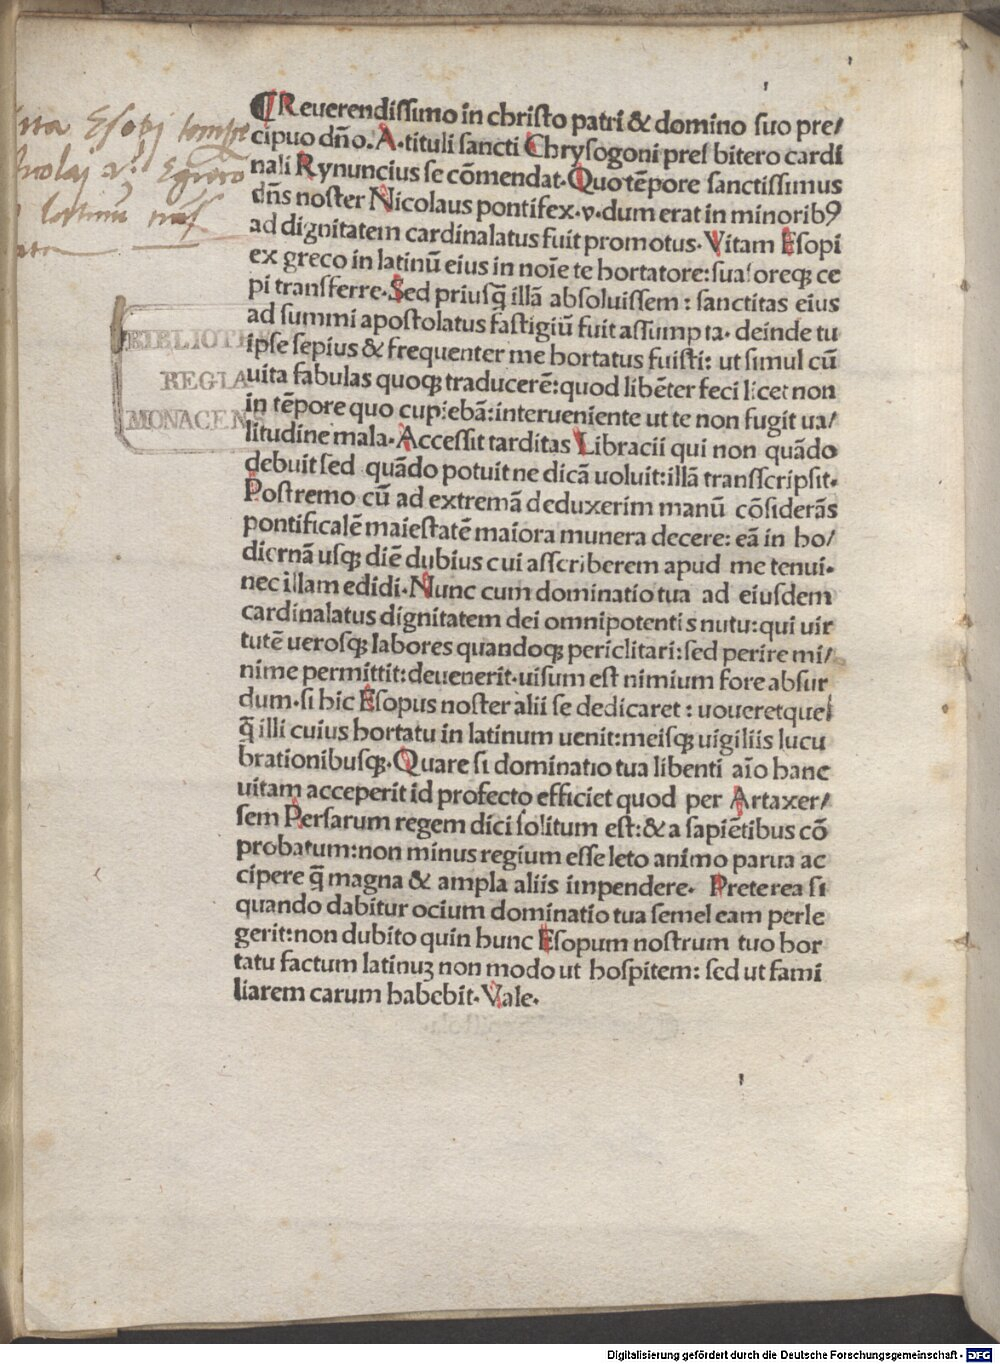 ¶ Reuerendissimo in christo patri & domino suo pre/
cipuo dño. A. tituli sancti Chrysogoni presbitero cardi
nali Rynuncius se cõmendat. Quo tẽpore sanctissimus
dñs noster Nicolaus pontifex .v. dum erat in minorib9
ad dignitatem cardinalatus fuit promotus. Vitam Esopi
ex greco in latinũ eius in noĩe te hortatore: suasoreqꝫ ce
pi transferre. Sed priusq̃ illã absoluissem: sanctitas eius
ad summi apostolatus fastigiũ fuit assumpta. deinde tu
ipse sepius & frequenter me hortatus fuisti: ut simul cũ
uita fabulas quoqꝫ traducerẽ: quod libẽter feci licet non
in tẽpore quo cupiebã: interueniente ut te non fugit ua/
litudine mala. Accessit tarditas Libracii qui non quãdo
debuit sed quãdo potuit ne dicã uoluit: illã transscripsit.
Postremo cũ ad extremã deduxerim manũ cõsiderãs
pontificalẽ maiestatẽ maiora munera decere: eã in ho/
diernã usqꝫ diẽ dubius cui asscriberem apud me tenui.
nec illam edidi. Nunc cum dominatio tua ad eiusdem
cardinalatus dignitatem dei omnipotentis nutu: qui uir
tutẽ uerosqꝫ labores quandoqꝫ periclitari: sed perire mi/
nime permittit: deuenerit. uisum est nimium fore absur
dum. si hic Esopus noster alii se dedicaret: uoueretque
q̃ illi cuius hortatu in latinum uenit: meisqꝫ uigiliis lucu
brationibusqꝫ. Quare si dominatio tua libenti aĩo hanc
uitam acceperit id profecto efficiet quod per Artaxer/
sem Persarum regem dici solitum est: & a sapiẽtibus cõ
probatum: non minus regium esse leto animo parua ac
cipere q̃ magna & ampla aliis impendere. Preterea si
quando dabitur ocium dominatio tua semel eam perle
gerit: non dubito quin hunc Esopum nostrum tuo hor
tatu factum latinuꝫ non modo ut hospitem: sed ut fami
liarem carum habebit. Vale.
Esopi
BIBLIOTHE
REGIA
MONACENS
Digitalisierung gefördert durch die Deutsche Forschungsgemeinschaft - DFG